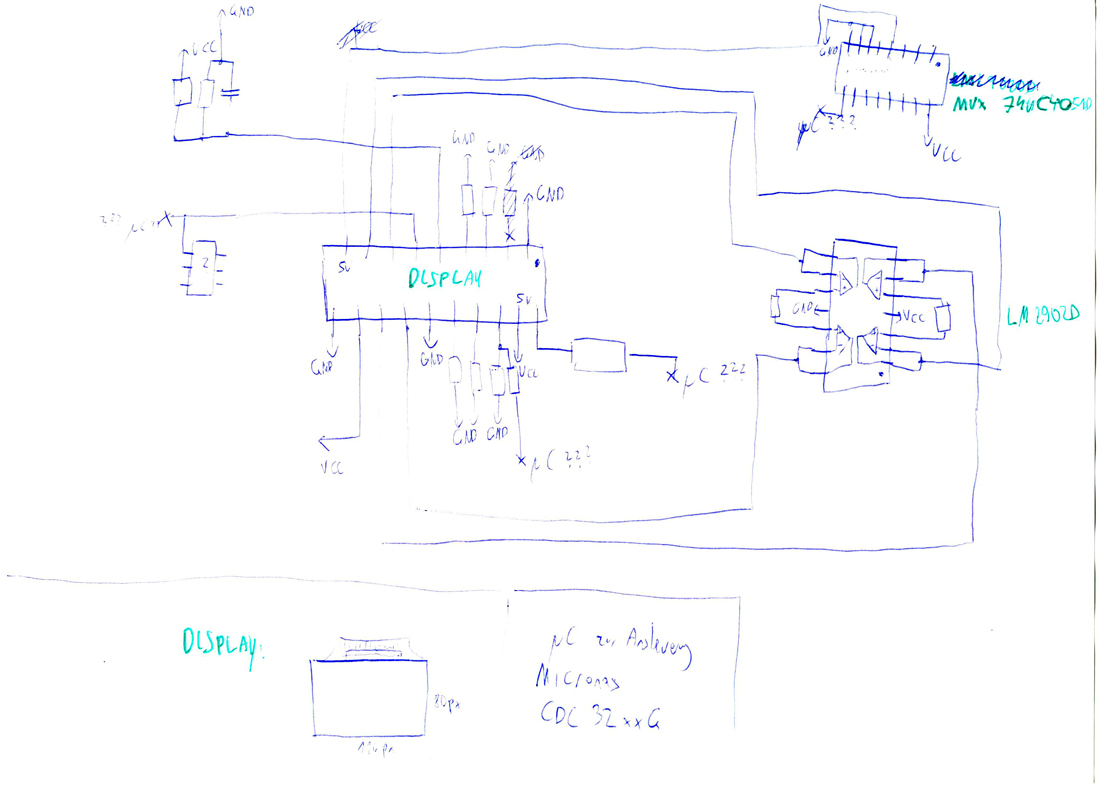 GND
VCC
GND
MUX 74HC4051D
µC ???
VCC
GND
GND
GND
??? µC
2
5V
DISPLAY
5V
GND
VCC
LM2902D
GND
GND
VCC
µC ???
GND
GND
VCC
µC ???
DISPLAY:
80px
µC zur Ansteuerung
Micronas
CDC 32xxG